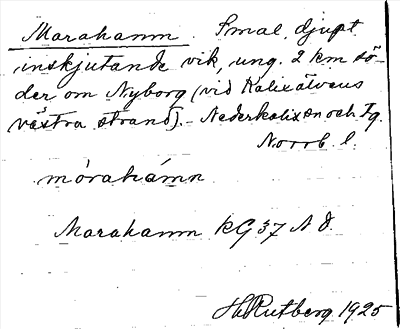 Marahamn Smal, djupt
inskjutande vik, ung. 2 km sö-
der om Nyborg (vid Kalixälvens
västra strand). - Nederkalix sn och tg.
Norrb. l.
mòrahámn
Marahamn kG 37 A d.
H. Rutberg 1925